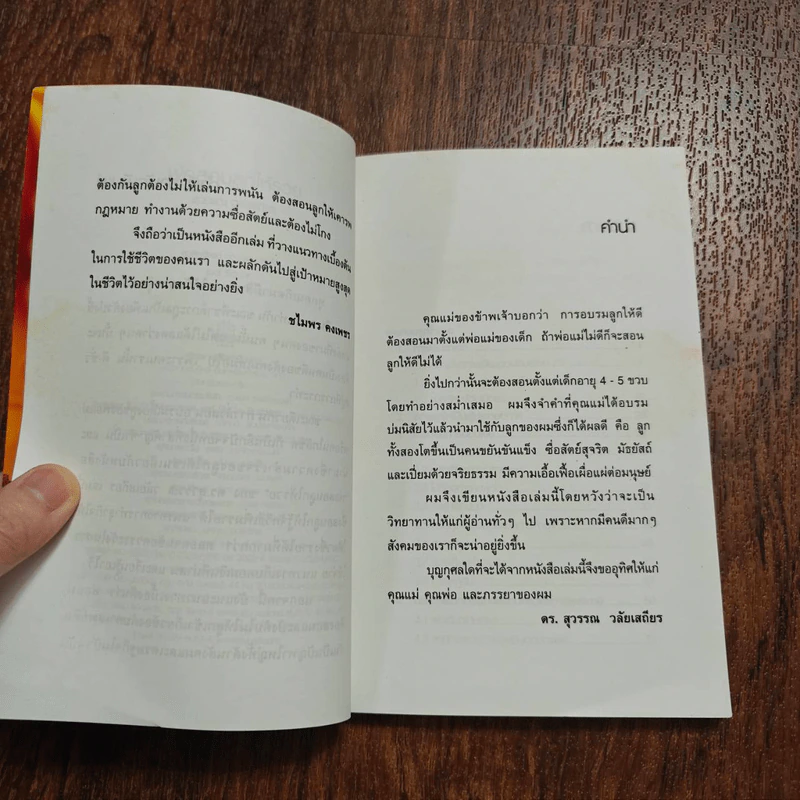 ต้องกันลูกต้องไม่ให้เล่นการพนัน ต้องสอนลูกให้เคารพ
กฎหมาย ทำงานด้วยความซื่อสัตย์และต้องไม่โกง
จึงถือว่าเป็นหนังสืออีกเล่ม ที่วางแนวทางเบื้องต้น
ในการใช้ชีวิตของคนเรา และผลักดันไปสู่เป้าหมายสูงสุด
ในชีวิตไว้อย่างน่าสนใจอย่างยิ่ง
ชไมพร คงเพชร
คำนำ
คุณแม่ของข้าพเจ้าบอกว่า การอบรมลูกให้ดี
ต้องสอนมาตั้งแต่พ่อแม่ของเด็ก ถ้าพ่อแม่ไม่ดีก็จะสอน
ลูกให้ดีไม่ได้
ยิ่งไปกว่านั้นจะต้องสอนตั้งแต่เด็กอายุ 4 - 5 ขวบ
โดยทำอย่างสม่ำเสมอ ผมจึงจำคำที่คุณแม่ได้อบรม
บ่มนิสัยไว้แล้วนำมาใช้กับลูกของผมซึ่งก็ได้ผลดี คือ ลูก
ทั้งสองโตขึ้นเป็นคนขยันขันแข็ง ซื่อสัตย์สุจริต มัธยัสถ์
และเปี่ยมด้วยจริยธรรม มีความเอื้อเฟื้อเผื่อแผ่ต่อมนุษย์
ผมจึงเขียนหนังสือเล่มนี้โดยหวังว่าจะเป็น
วิทยาทานให้แก่ผู้อ่านทั่วๆ ไป เพราะหากมีคนดีมากๆ
สังคมของเราก็จะน่าอยู่ยิ่งขึ้น
บุญกุศลใดที่จะได้จากหนังสือเล่มนี้จึงขออุทิศให้แก่
คุณแม่ คุณพ่อ และภรรยาของผม
ดร. สุวรรณ วลัยเสถียร